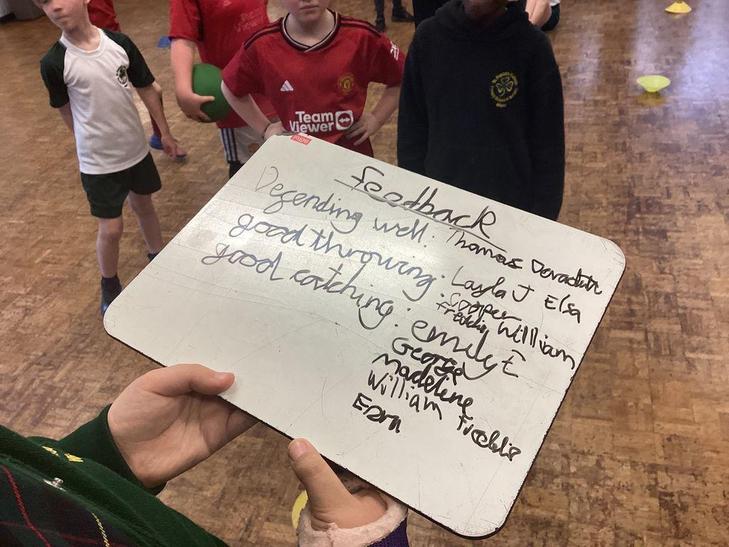 Team
Viewer
feedback
Defending well: Thomas
good throwing: Layla J Elsa
Cooper
Freddie William
good catching: emily E
George
Madeline
William Freddie
Ezra